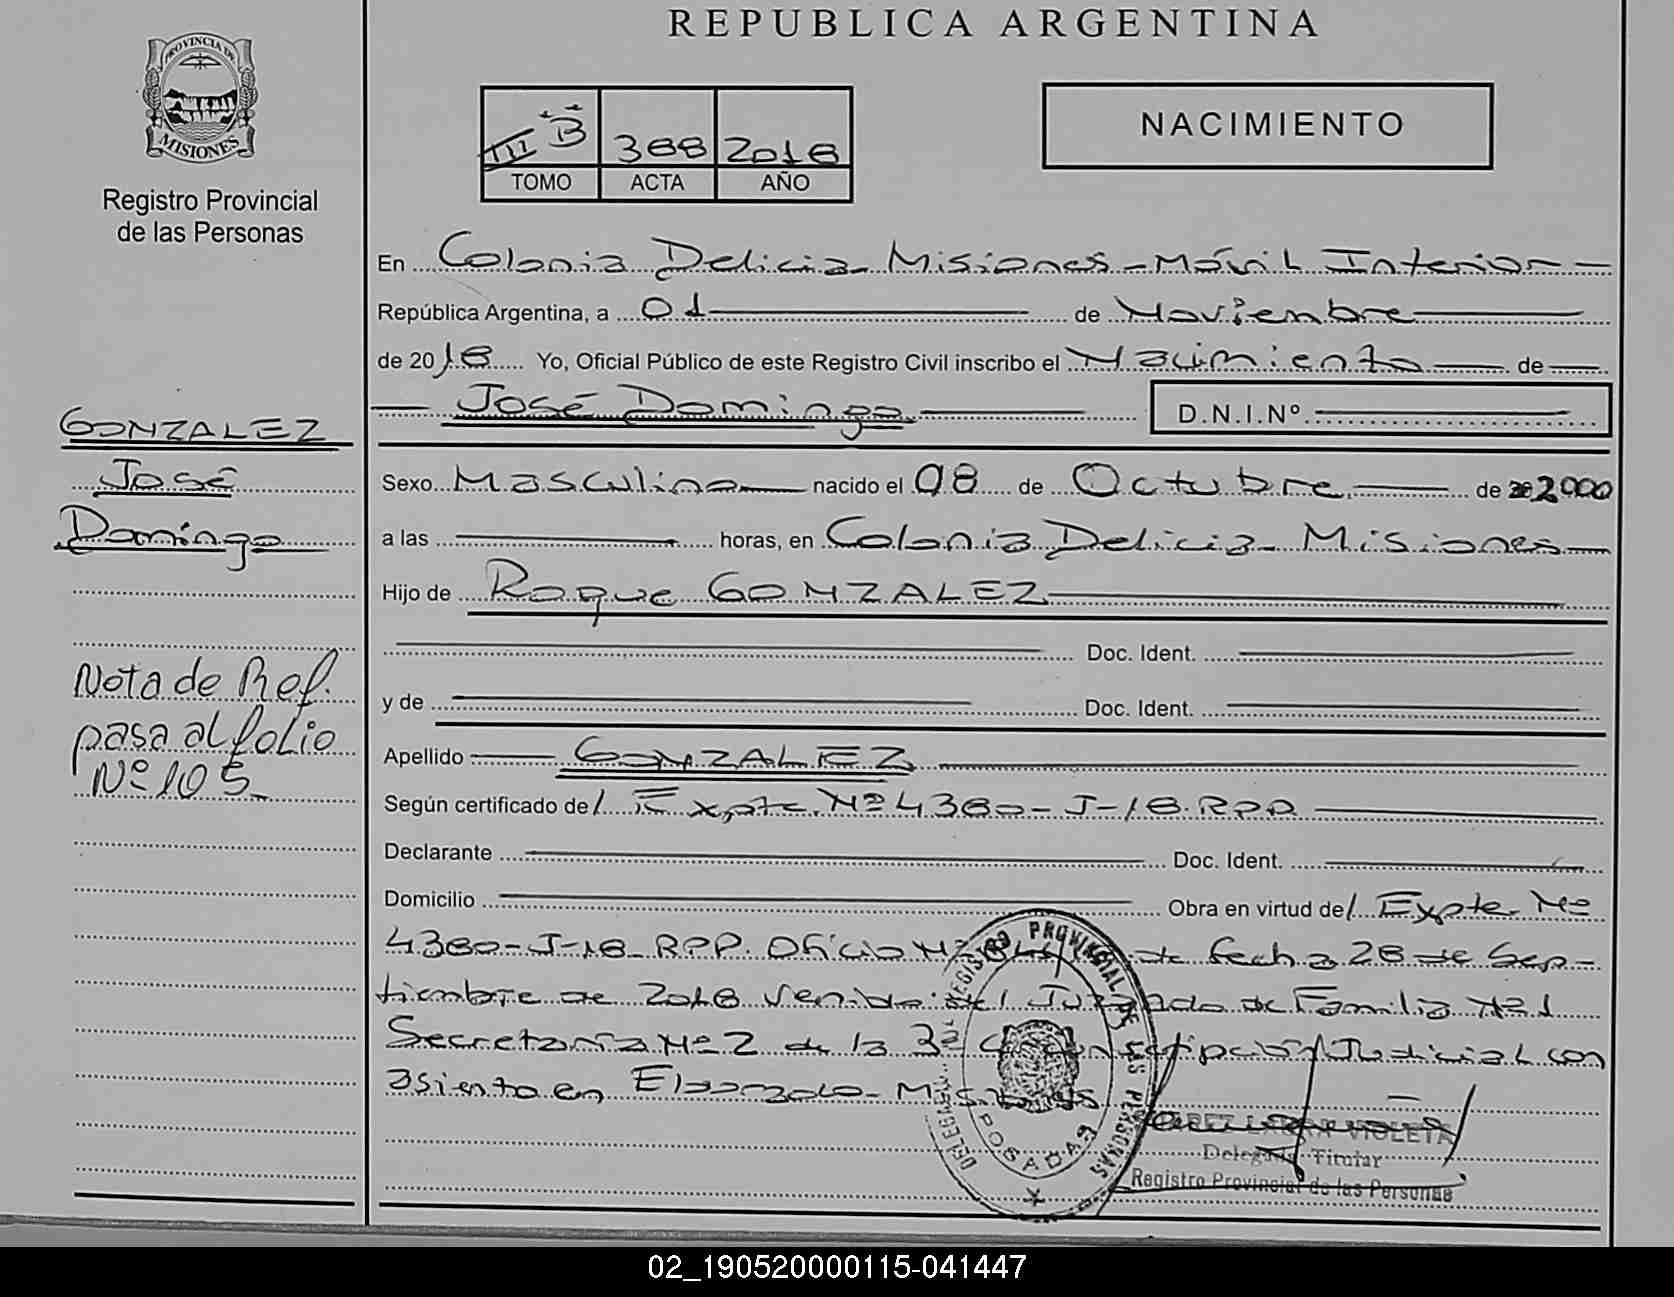 REPUBLICA ARGENTINA
PROVINCIA DE
MISIONES
Registro Provincial
de las Personas
III B 388 2018
TOMO ACTA AÑO
NACIMIENTO
En Colonia Delicia - Misiones - Móvil Interior -
República Argentina, a 01 de Noviembre
de 2018 Yo, Oficial Público de este Registro Civil inscribo el Nacimiento de
José Domingo D.N.I.Nº
GONZALEZ
José
Domingo
Sexo Masculino nacido el 08 de Octubre de 2000
a las horas, en Colonia Delicia - Misiones
Hijo de Roque GONZALEZ
Doc. Ident.
y de Doc. Ident.
Nota de Ref.
pasa al folio
Nº 105
Apellido GONZALEZ
Según certificado de / Expte. Nº 4380-J-18. RPP.
Declarante Doc. Ident.
Domicilio Obra en virtud de / Expte. Nº
4380-J-18. RPP. Oficio Nº de fecha 28 de Sep-
tiembre de 2018 venido del Juzgado de Familia Nº 1
Secretaría Nº 2 de la 3ª Circunscripción Judicial con
asiento en Eldorado - Misiones
REGISTRO PROVINCIAL DE LAS PERSONAS
POSADAS
VIOLETA
Delegada Titular
Registro Provincial de las Personas
02_190520000115-041447